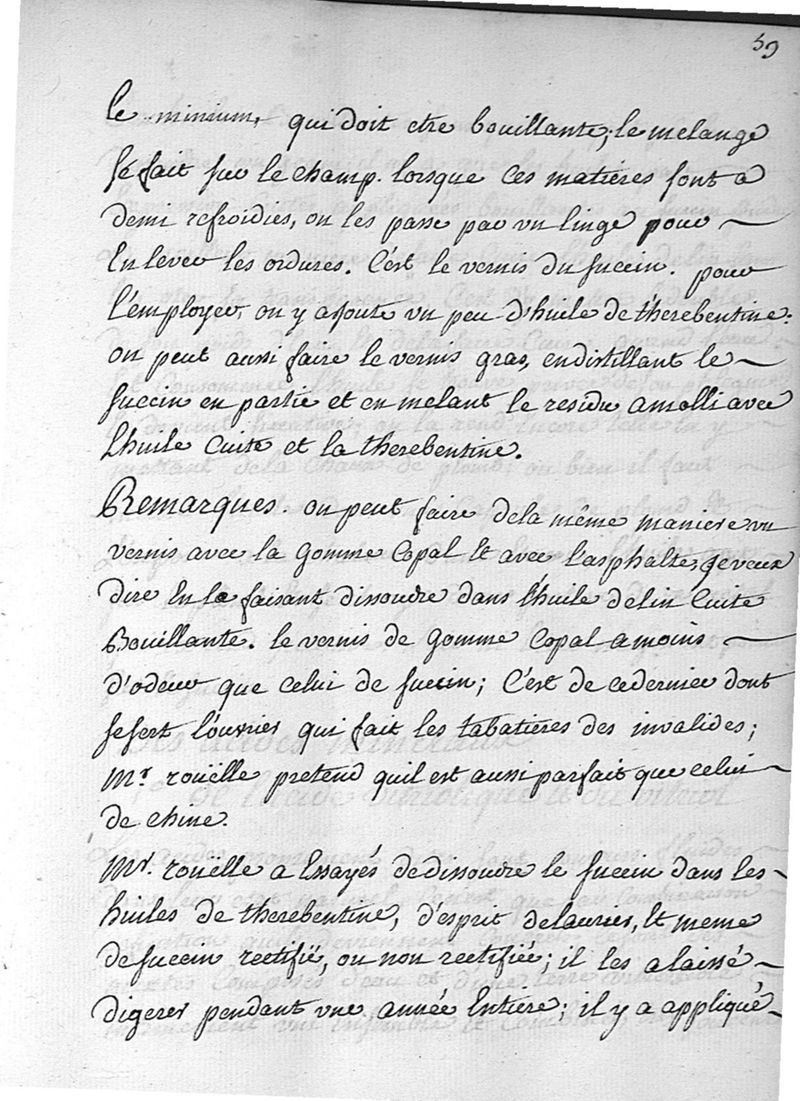 59
le minium, qui doit etre bouillante; le melange
sé fait sur le champ. lorsque ces matiéres sont a
demi refroidies, on les passe par vn linge pour
Enlever les ordures. C'est le vernis du succin. pour
l'employer, on y ajoute vn peu d'huile de thérebentine.
on peut aussi faire le vernis gras, en distillant le
succin en partie et en melant le residu amolli avec
l'huile Cuite et la therebentine.
Remarques. on peut faire dela même maniere vn
vernis avec la gomme Copal Et avec l'asphalte, je veux
dire En la faisant dissoudre dans l'huile de lin Cuite
Bouillante. le vernis de gomme Copal a moins
d'odeur que celui de succin; C'est de cedernier dont
se sert l'ouvrier qui fait les tabatiéres des invalides;
Mr. roüelle pretend quil est aussi parfait que celui
de chine.
Mr. roüelle a Essayés dedissoudre le succin dans les
huiles de therebentine, d'esprit Et meme
de succin rectifié, ou non rectifiée; il les a laissé
digerer pendant vne année Entiére; il y a appliqué